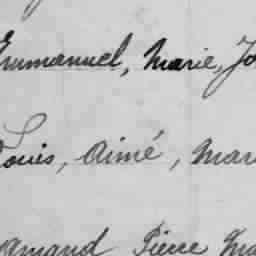 Emmanuel, Marie, Jo
Louis, Aimé, Mar
Armand Pierre